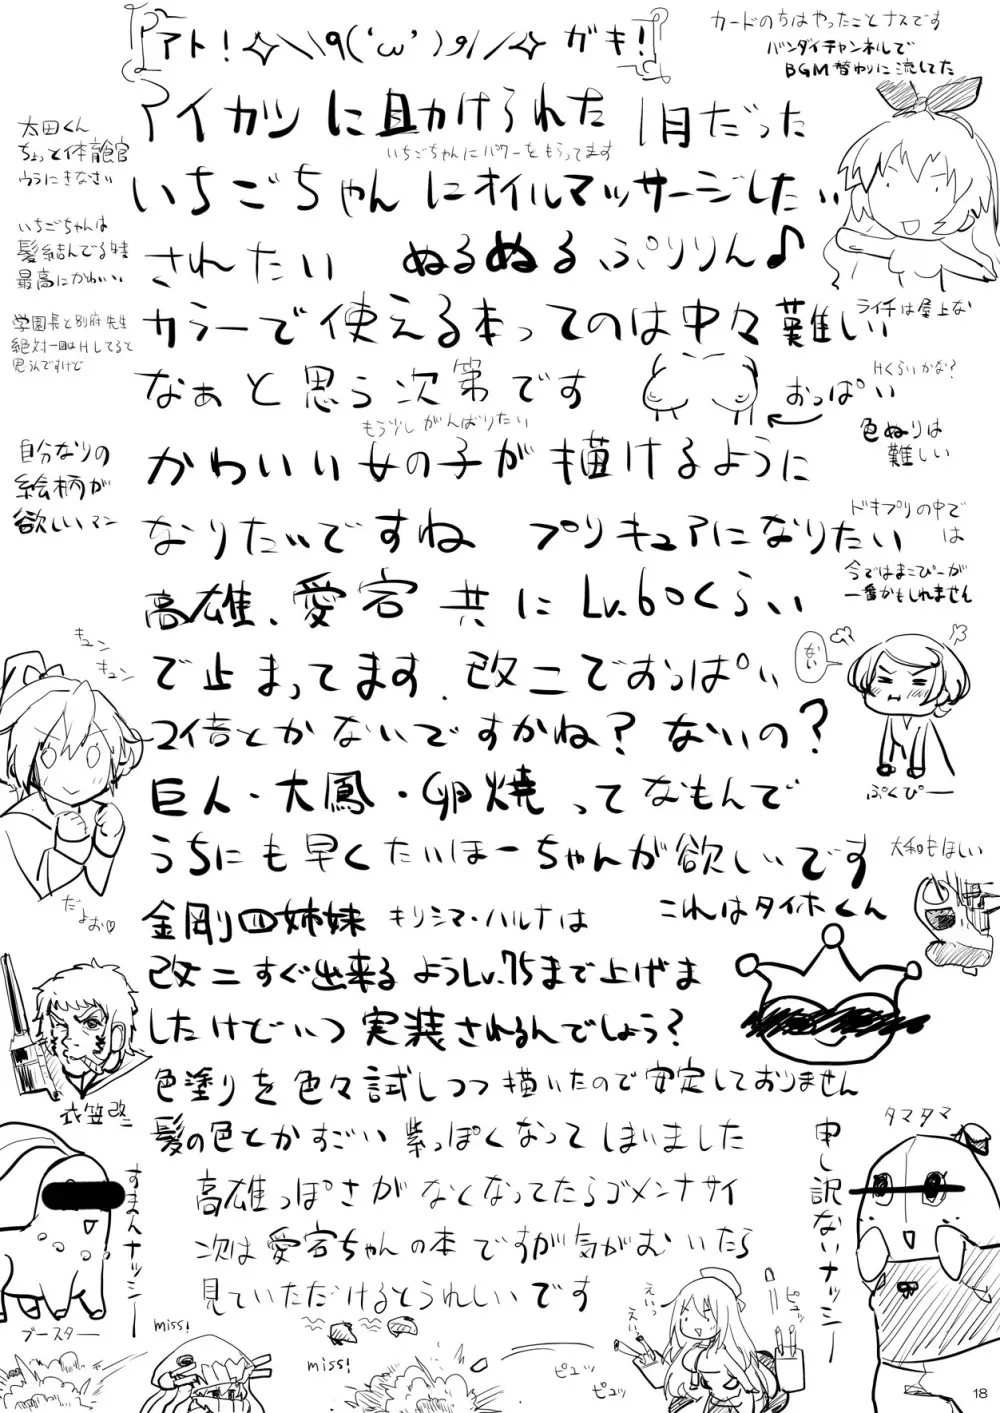 アト!✧\\٩('ω')و//✧ガキ!
カードのちはやったことナスです
バンダイチャンネルで
BGM替わりに流してた
アイカツに助けられた1月だった
いちごちゃんにパワーをもらってます
太田くん
ちょっと体育館
ウラにきなさい
いちごちゃんにオイルマッサージしたい
いちごちゃんは
髪結んでる時
最高にかわいい
されたい ぬるぬるぷりりん♪
学園長と別府先生
絶対一回はHしてると
思うんですけど
カラーで使える本ってのは中々難しい
ライチは屋上な
なぁと思う次第です
おっぱい
Hくらいかな?
もう少しがんばりたい
色ぬりは
難しい
自分なりの
絵柄が
欲しいマン
かわいい女の子が描けるように
なりたいですね プリキュアになりたい
ドキプリの中で
は
今ではまこぴーが
一番かもしれません
高雄、愛宕共にLv.60くらい
キュン
キュン
で止まってます。改二でおっぱい
ない
2倍とかないですかね?ないの?
ぷくぴー
巨人・大鳳・卵焼ってなもんで
うちにも早くたいほーちゃんが欲しいです
大和もほしい
だよお♡
金剛四姉妹 キリシマ・ハルナは
これはタイホくん
改二すぐ出来るようLv.75まで上げま
したけどいつ実装されるんでしょう?
衣笠改二
色塗りを色々試しつつ描いたので安定しておりません
髪の色とかすごい紫っぽくなってしまいました
タマタマ
申し訳ないナッシー
すまんナッシー
高雄っぽさがなくなってたらゴメンナサイ
次は愛宕ちゃんの本ですが気がむいたら
見ていただけるとうれしいです
ブースター
えいっ
えいっ
ピュッ
miss!
miss!
ピュッ
ピュッ
18